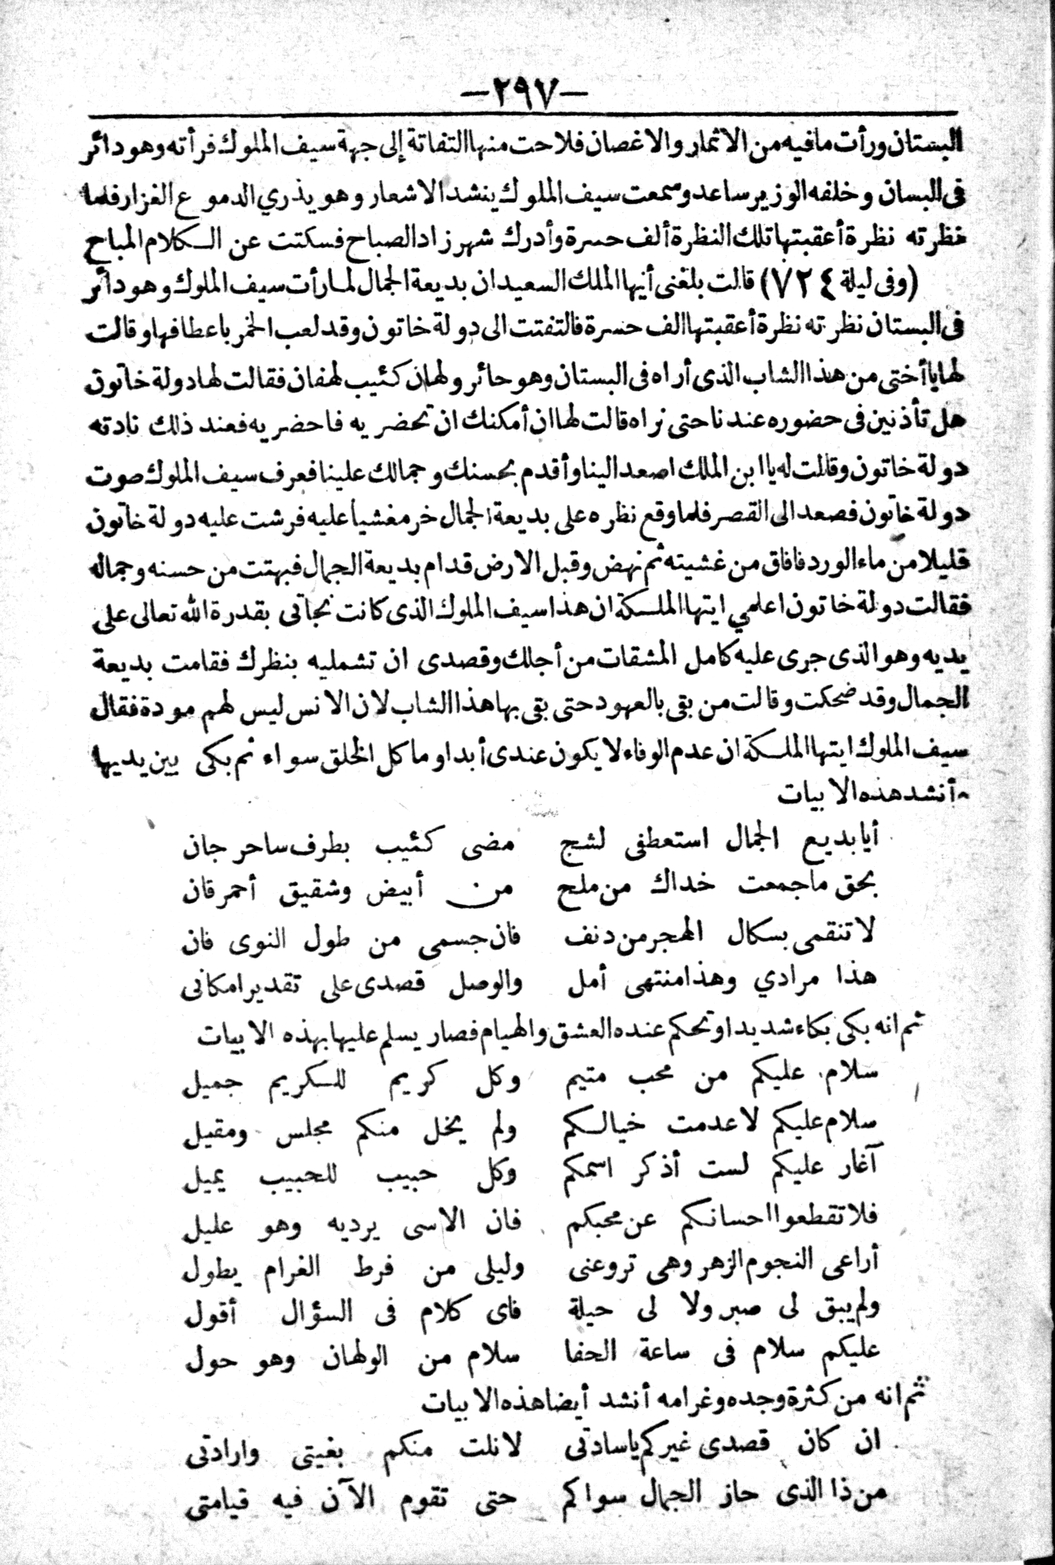 —٢٩٧—
البستان ورأت ما فيه من الاثمار والاغصان فلاحت منها التفاتة إلى جهة سيف الملوك فرأته وهو دائر
فى البسان وخلفه الوزير ساعد وسمعت سيف الملوك ينشد الاشعار وهو يذري الدموع الغزار فلما
نظرته نظرة أعقبتها تلك النظرة ألف حسرة وأدرك شهر زاد الصباح فسكتت عن الكلام المباح
(وفى ليلة ٧٢٤) قالت بلغنى أيها الملك السعيد ان بديعة الجمال لما رأت سيف الملوك وهو دائر
فى البستان نظرته نظرة أعقبتها الف حسرة فالتفتت الى دولة خاتون وقد لعب الخمر باعطافها وقالت
لها يا أختى من هذا الشاب الذى أراه فى البستان وهو حائر ولهان كئيب لهفان فقالت لها دولة خاتون
هل تأذنين فى حضوره عندنا حتى نراه قالت لها ان أمكنك ان تحضريه فاحضريه فعند ذلك نادته
دولة خاتون وقالت له يا ابن الملك اصعد الينا وأقدم بحسنك وجمالك علينا فعرف سيف الملوك صوت
دولة خاتون فصعد الى القصر فلما وقع نظره على بديعة الجمال خر مغشيا عليه فرشت عليه دولة خاتون
قليلا من ماء الورد فافاق من غشيته ثم نهض وقبل الارض قدام بديعة الجمال فبهتت من حسنه وجماله
فقالت دولة خاتون اعلمي ايتها الملكة ان هذا سيف الملوك الذى كانت نجاتى بقدرة الله تعالى على
يديه وهو الذى جرى عليه كامل المشقات من أجلك وقصدى ان تشمليه بنظرك فقامت بديعة
الجمال وقد ضحكت وقالت من بقى بالعهود حتى بقى بها هذا الشاب لان الانس ليس لهم مودة فقال
سيف الملوك ايتها الملكة ان عدم الوفاء لا يكون عندى أبدا وما كل الخلق سواء ثم بكى بين يديها
وأنشد هذه الابيات
أيا بديع الجمال استعطفى لشج مضى كئيب بطرف ساحر جان
بحق ما جمعت خداك من ملح من أبيض وشقيق أحمر قان
لا تنقمى بسكال الهجر من دنف فان جسمي من طول النوى فان
هذا مرادي وهذا منتهى أمل والوصل قصدى على تقدير امكانى
ثم انه بكى بكاء شديدا وتحكم عنده العشق والهيام فصار يسلم عليها بهذه الابيات
سلام عليكم من محب متيم وكل كريم للكريم جميل
سلام عليكم لا عدمت خيالكم ولم يخل منكم مجلس ومقيل
آغار عليكم لست أذكر اسمكم وكل حبيب للحبيب يميل
فلا تقطعوا احسانكم عن محبكم فان الاسى يرديه وهو عليل
أراعى النجوم الزهر وهى تروعنى وليلى من فرط الغرام يطول
ولم يبق لى صبر ولا لى حيلة فاى كلام فى السؤال أقول
عليكم سلام فى ساعة الحفا سلام من الولهان وهو حول
ثم انه من كثرة وجده وغرامه أنشد أيضا هذه الابيات
ان كان قصدى غيركم يا سادتى لا نلت منكم بغيتى وارادتى
من ذا الذى حاز الجمال سواكم حتى تقوم الآن فيه قيامتى